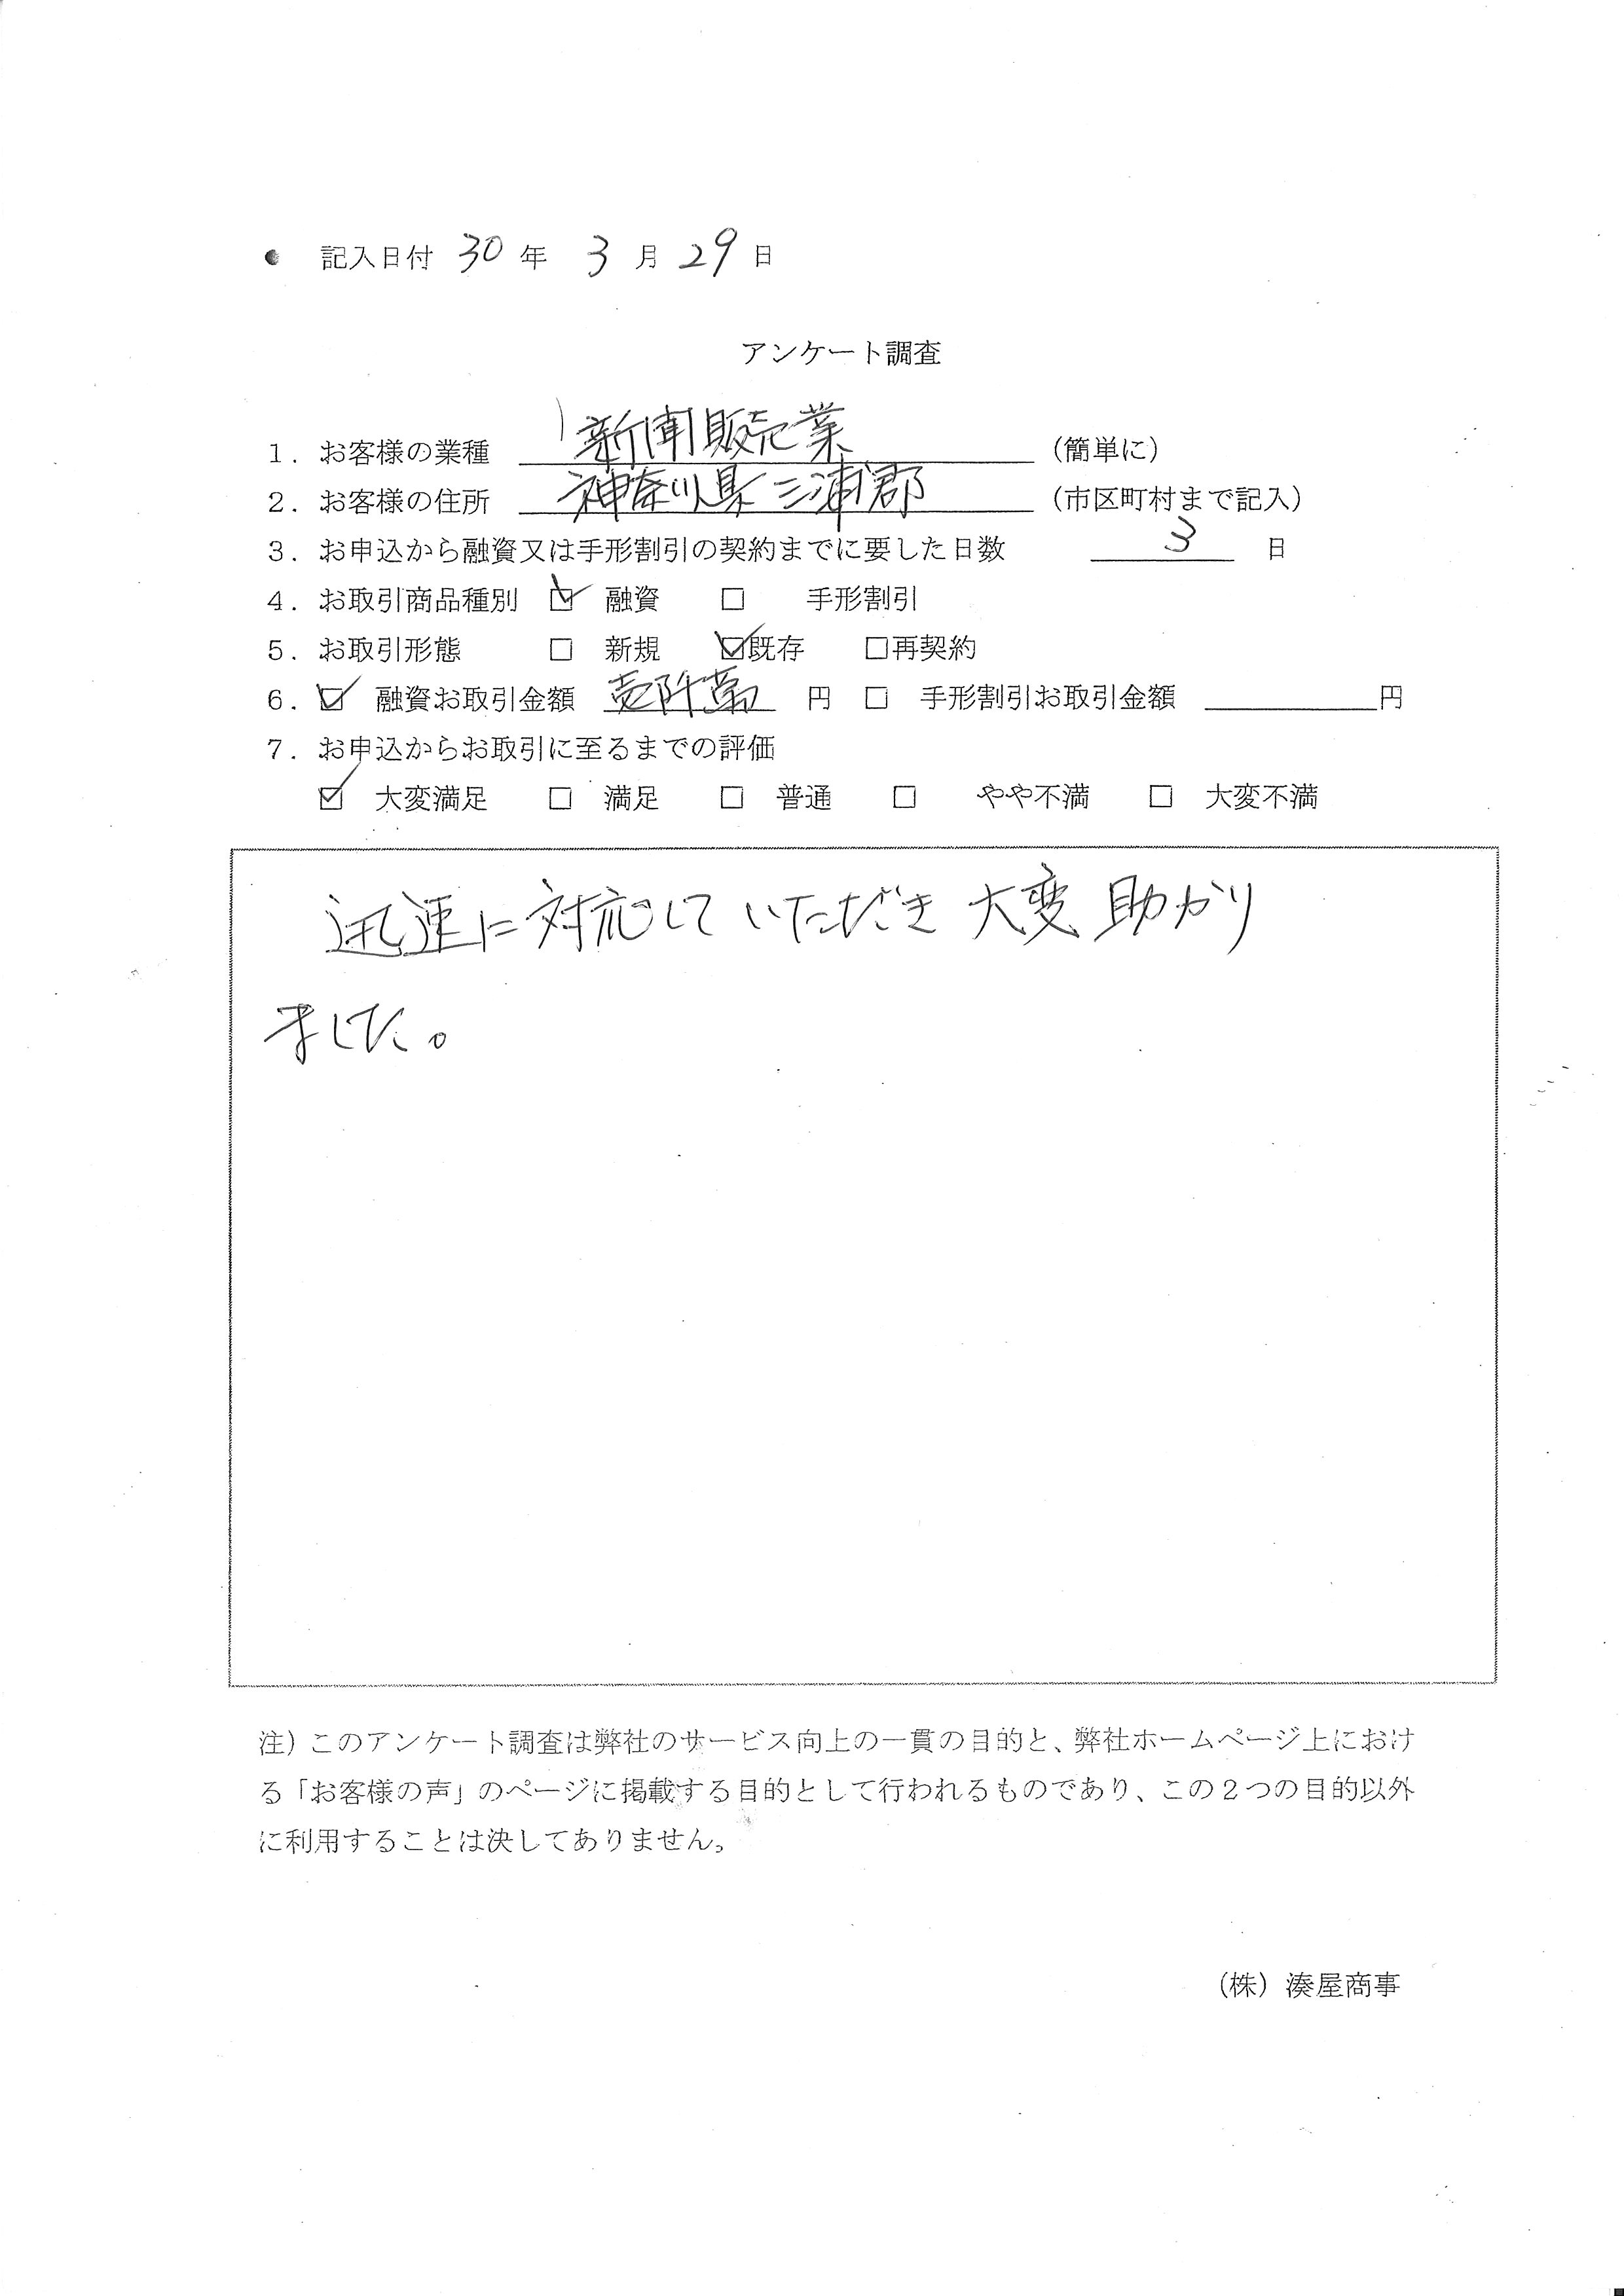 ● 記入日付 30 年 3 月 29 日
アンケート調査
1. お客様の業種 新聞販売業 (簡単に)
2. お客様の住所 神奈川県三浦郡 (市区町村まで記入)
3. お申込から融資又は手形割引の契約までに要した日数 3 日
4. お取引商品種別 ☑ 融資 □ 手形割引
5. お取引形態 □ 新規 ☑既存 □再契約
6. ☑ 融資お取引金額 壱阡萬 円 □ 手形割引お取引金額 ______円
7. お申込からお取引に至るまでの評価
☑ 大変満足 □ 満足 □ 普通 □ やや不満 □ 大変不満
迅速に対応していただき大変助かり
ました。
注) このアンケート調査は弊社のサービス向上の一貫の目的と、弊社ホームページ上におけ
る「お客様の声」のページに掲載する目的として行われるものであり、この2つの目的以外
に利用することは決してありません。
(株) 湊屋商事